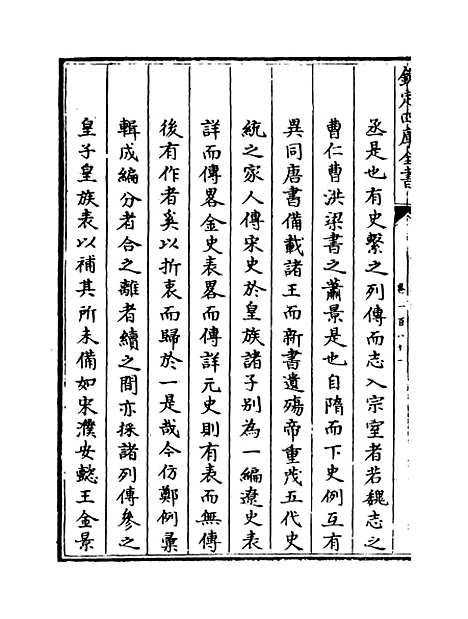 欽定四庫全書
卷一百八十一
丞是也有史繫之列傳而志入宗室者若魏志之
曹仁曹洪梁書之蕭景是也自隋而下史例互有
異同唐書備載諸王而新書遺殤帝重茂五代史
統之家人傳宋史於皇族諸子別為一編遼史表
詳而傳畧金史表畧而傳詳元史則有表而無傳
後有作者奚以折衷而歸於一是哉今仿鄭例彙
輯成編分者合之離者續之間亦採諸列傳參之
皇子皇族表以補其所未備如宋濮安懿王金景